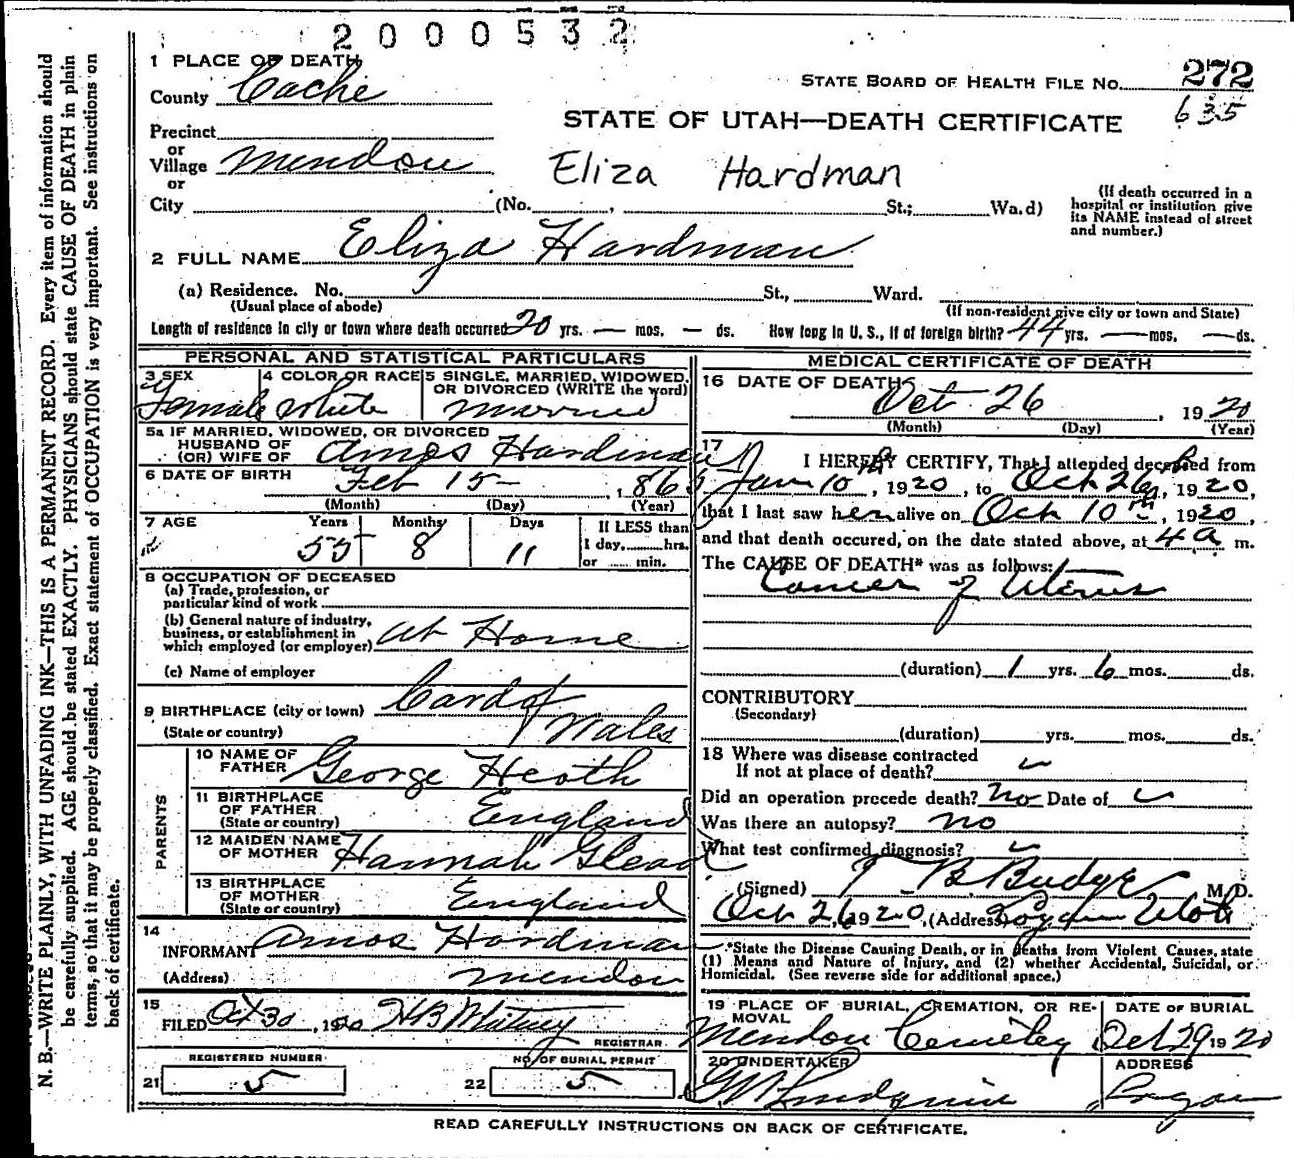 2 0 0 0 5 3 2
1 PLACE OF DEATH
County Cache
STATE BOARD OF HEALTH FILE No. 272
635
STATE OF UTAH—DEATH CERTIFICATE
Precinct
or
Village Mendon
or
Eliza Hardman
City (No. , St.; Wa.d)
(If death occurred in a
hospital or institution give
its NAME instead of street
and number.)
2 FULL NAME Eliza Hardman
(a) Residence. No. St., Ward.
(Usual place of abode) (If non-resident give city or town and State)
Length of residence in city or town where death occurred 20 yrs. — mos. — ds. How long in U. S., if of foreign birth? 44 yrs. — mos. — ds.
PERSONAL AND STATISTICAL PARTICULARS
3 SEX 4 COLOR OR RACE 5 SINGLE, MARRIED, WIDOWED,
OR DIVORCED (WRITE the word)
Female White married
5a IF MARRIED, WIDOWED, OR DIVORCED
HUSBAND OF
(OR) WIFE OF Amos Hardman
6 DATE OF BIRTH Feb 15 — , 1865
(Month) (Day) (Year)
7 AGE Years Months Days If LESS than
55 8 11 1 day, hrs.
or min.
8 OCCUPATION OF DECEASED
(a) Trade, profession, or
particular kind of work
(b) General nature of industry,
business, or establishment in
which employed (or employer) At Home
(c) Name of employer
9 BIRTHPLACE (city or town) Cardof
(State or country) Wales
PARENTS
10 NAME OF
FATHER George Heath
11 BIRTHPLACE
OF FATHER
(State or country) England
12 MAIDEN NAME
OF MOTHER Hannah
13 BIRTHPLACE
OF MOTHER
(State or country) England
14
INFORMANT Amos Hardman
(Address) Mendon
15
FILED Oct 30 , 1920 HB Whitney
REGISTRAR
REGISTERED NUMBER NO. OF BURIAL PERMIT
21 5 22 5
MEDICAL CERTIFICATE OF DEATH
16 DATE OF DEATH Oct 26 , 1920
(Month) (Day) (Year)
17
I HEREBY CERTIFY, That I attended deceased from
Jan 10th , 1920 , to Oct 26th , 1920,
that I last saw her alive on Oct 10th , 1920,
and that death occured, on the date stated above, at 4 a m.
The CAUSE OF DEATH* was as follows:
Cancer of Uterus
(duration) 1 yrs. 6 mos. ds.
CONTRIBUTORY
(Secondary)
(duration) yrs. mos. ds.
18 Where was disease contracted
If not at place of death?
Did an operation precede death? No Date of
Was there an autopsy? no
What test confirmed diagnosis?
(Signed) T B Budge M. D.
Oct 26, 1920, (Address) Logan Utah
*State the Disease Causing Death, or in deaths from Violent Causes, state
(1) Means and Nature of Injury, and (2) whether Accidental, Suicidal, or
Homicidal. (See reverse side for additional space.)
19 PLACE OF BURIAL, CREMATION, OR RE-
MOVAL
DATE OF BURIAL
Mendon Cemetery Oct 29 1920
20 UNDERTAKER ADDRESS
Logan
READ CAREFULLY INSTRUCTIONS ON BACK OF CERTIFICATE.
N. B.—WRITE PLAINLY, WITH UNFADING INK—THIS IS A PERMANENT RECORD. Every item of information should
be carefully supplied. AGE should be stated EXACTLY. PHYSICIANS should state CAUSE OF DEATH in plain
terms, so that it may be properly classified. Exact statement of OCCUPATION is very important. See instructions on
back of certificate.